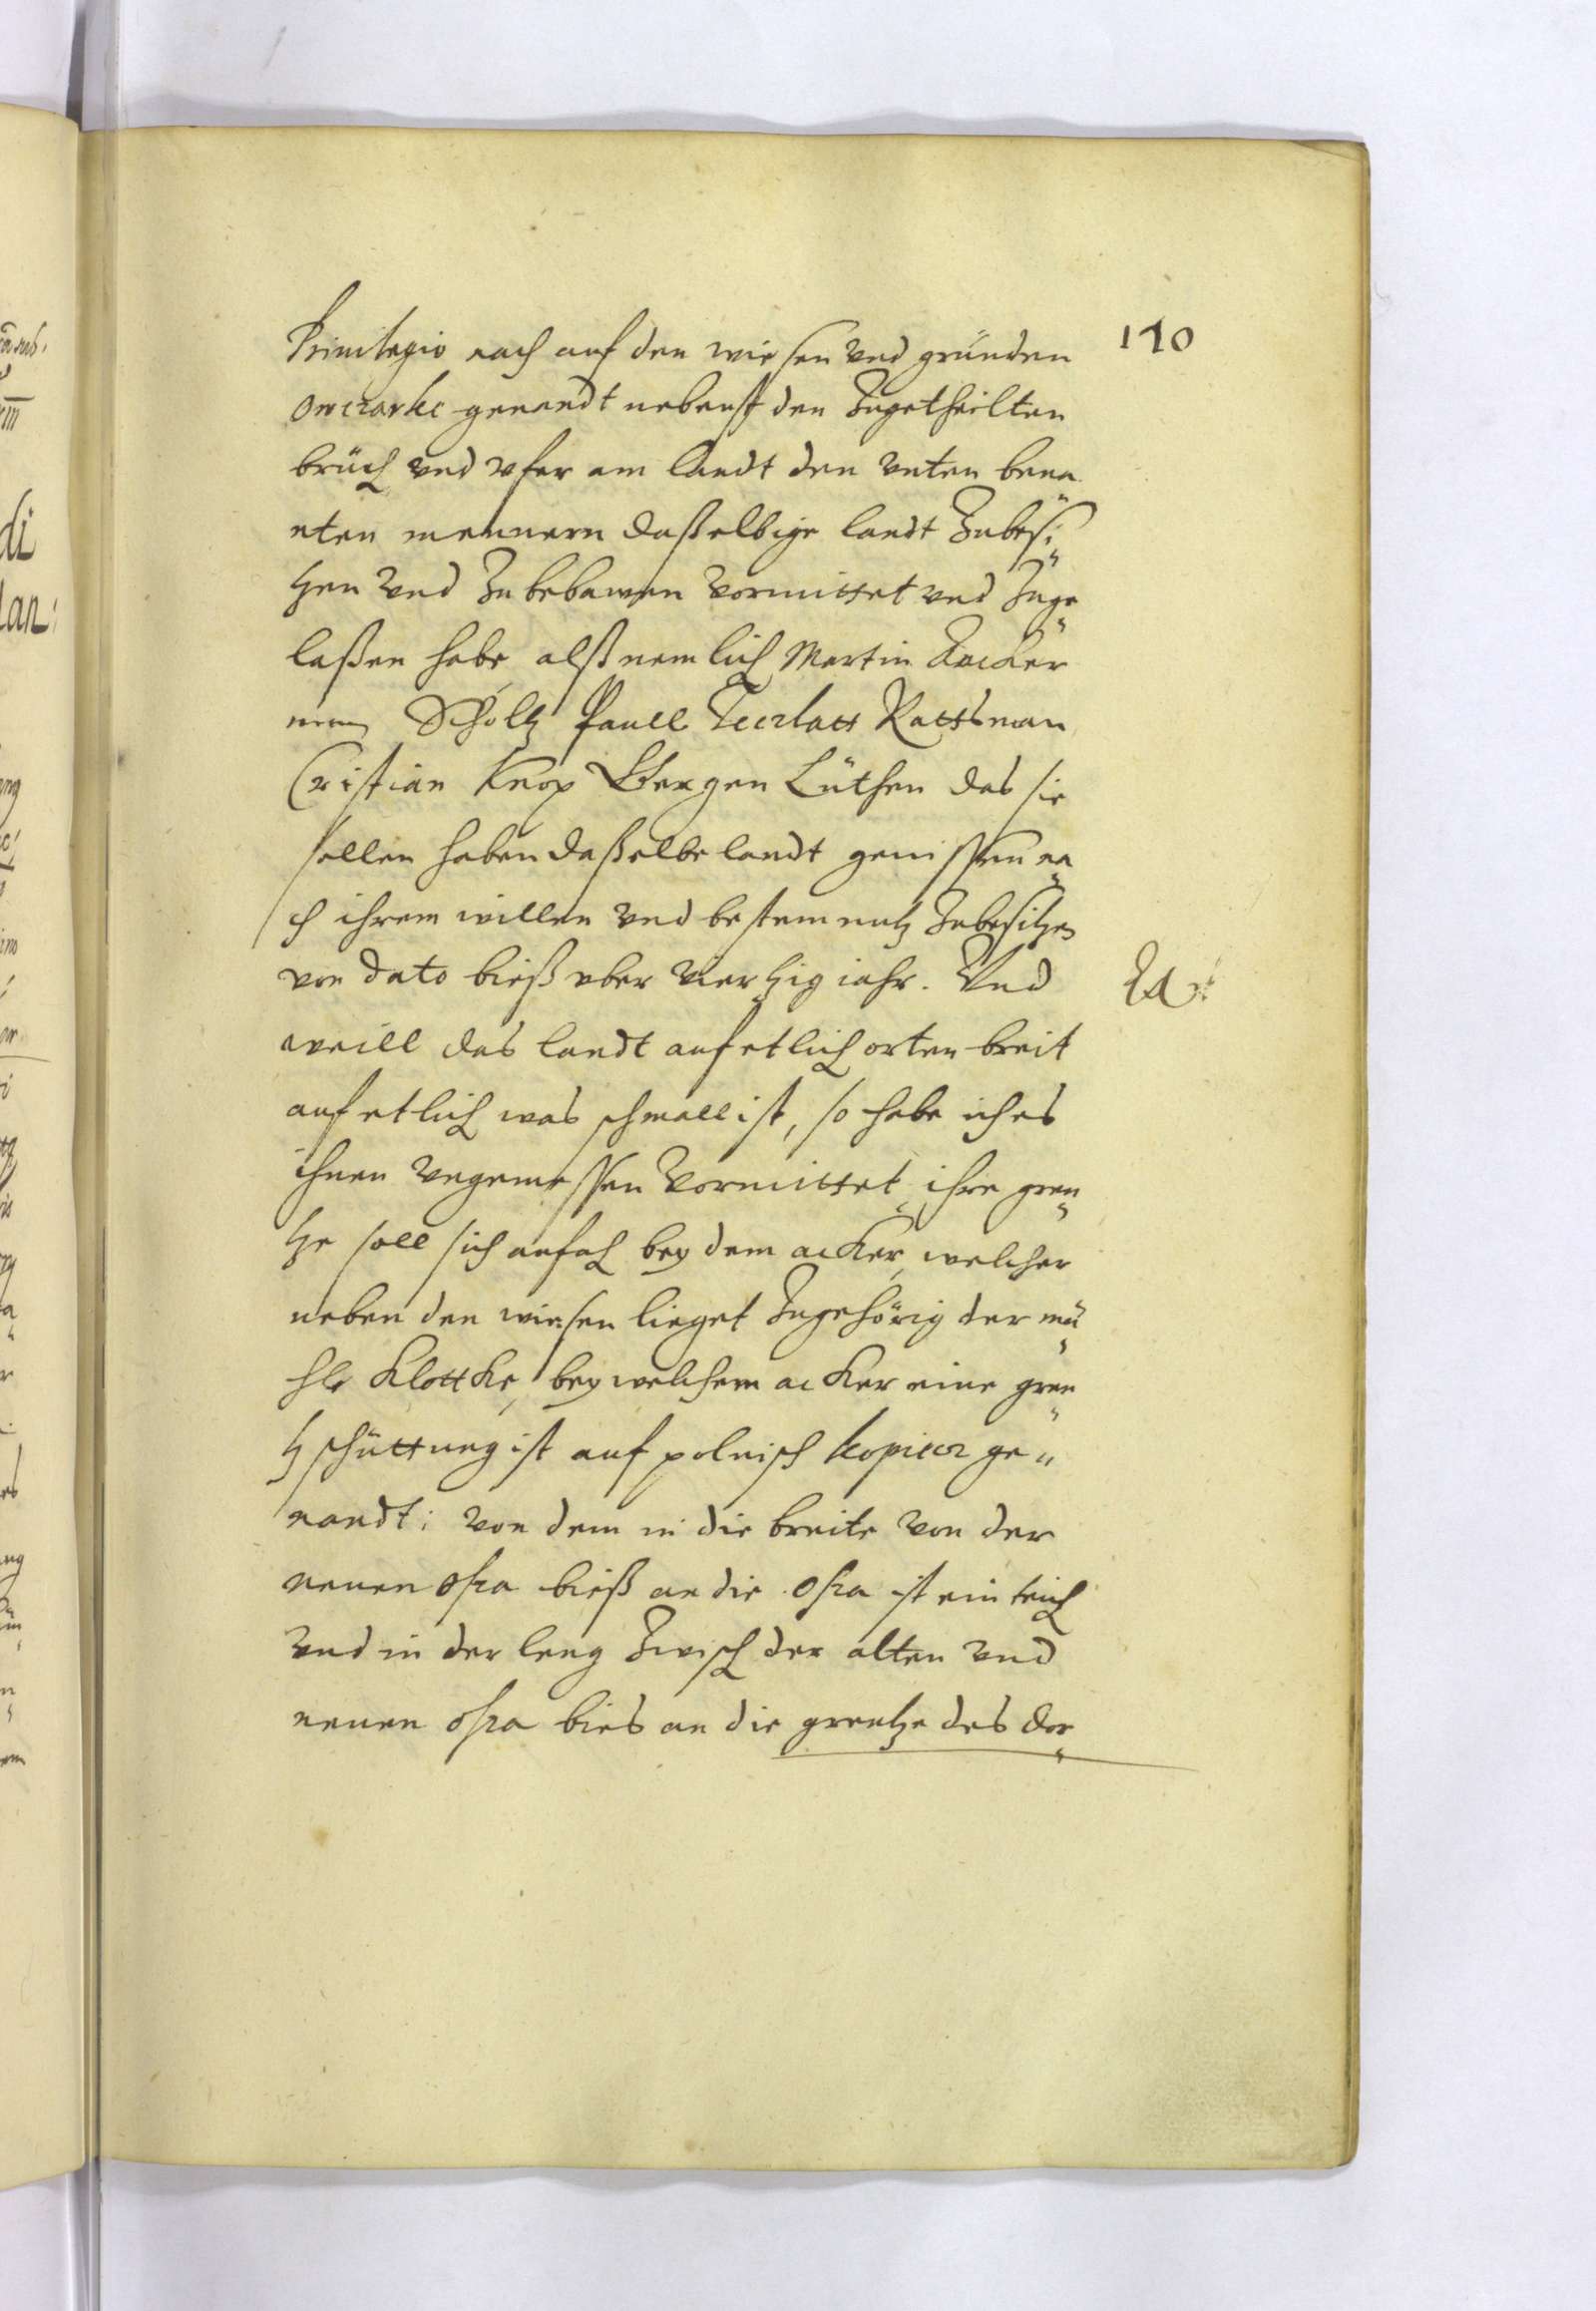 170
Privilegio nach auf den wiesen vnd gründen
Owczarke genandt nebenst den Zugetheilten
brüch vnd vfer am landt den vnten bena
nten mennern daßelbige landt Zubesi
tzen vnd Zubebawen vormittet vnd Zuge
laßen habe alß nemlich Martin
Scholtz Paull Rattsman
Cristian Knop Gergen Lüthen das sie
sollen haben daßelbe landt genissen na
ch ihrem willen vnd bestem nutz Zubesitzen
von dato bieß vber viertzig iahr. Vnd
weill das landt auf etlich orten breit
auf etlich was schmall ist, so habe ich es
ihnen vngemessen vormittet, ihre gren
tze soll sich anfach bey dem acker, welcher
neben den wiesen lieget Zugehörig der mü
hle Klottke, bey welchem acker eine gren
tzschüttung ist auf polnisch kopiecz ge
nandt: von dem in die breite von der
neuen ossa bieß an die ossa ist ein teich
vnd in der leng Zwisch der alten vnd
neuen ossa bies an die grentze des dor